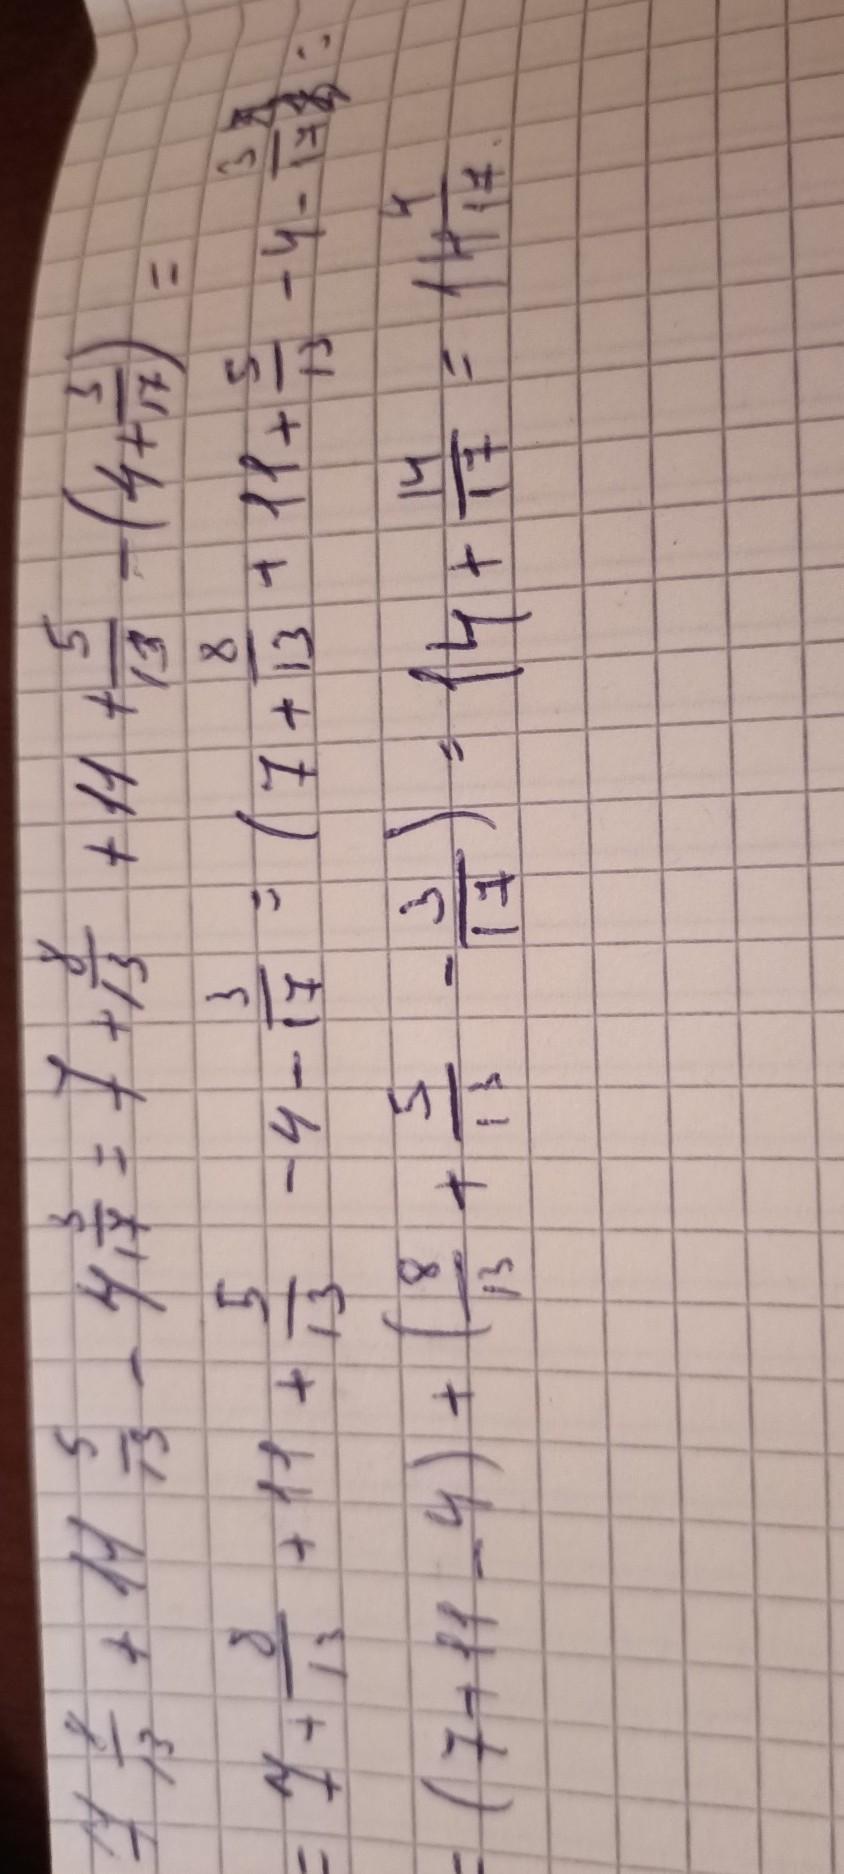 7 8/13 + 11 5/13 - 4 3/17 = 7 + 8/13 + 11 + 5/13 - (4 + 3/17) =
= 7 + 8/13 + 11 + 5/13 - 4 - 3/17 = (7 + 8/13 + 11 + 5/13 - 4 - 3/17 =
= (7 + 11 - 4) + (8/13 + 5/13 - 3/17) = 14 + 14/17 = 14 4/17.